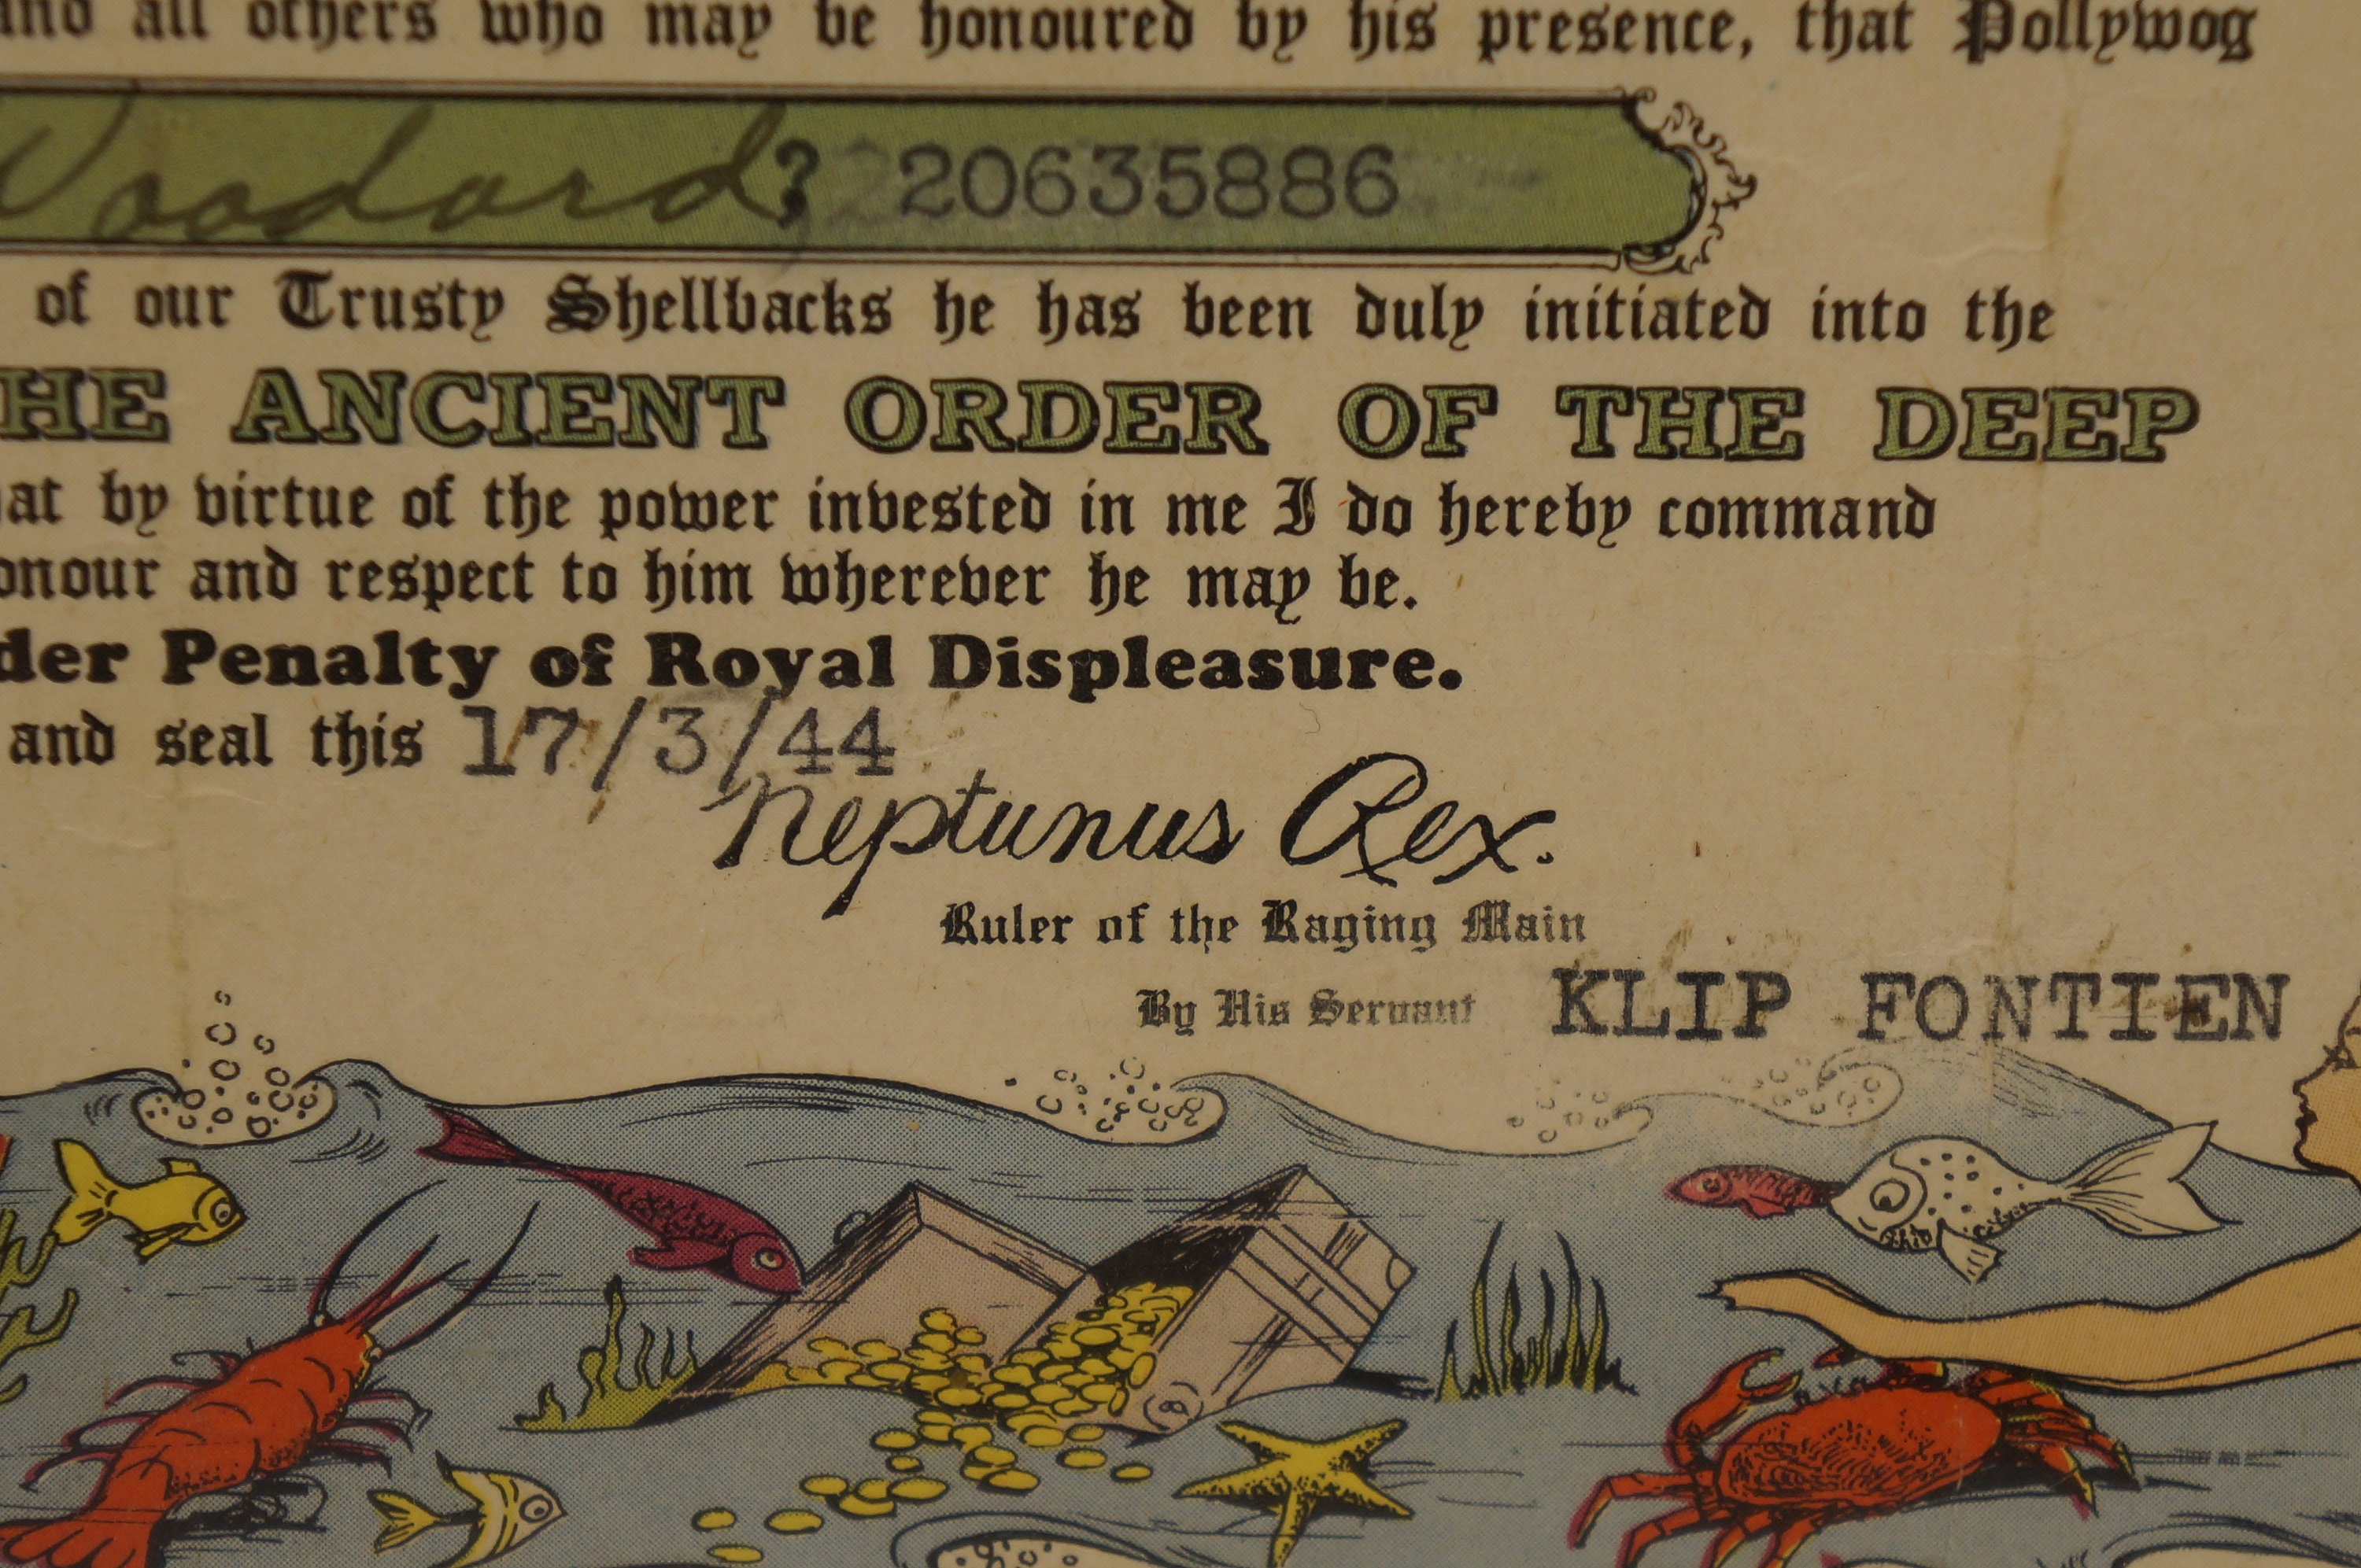 and all others who may be honoured by his presence, that Pollywog
Woodard, 20635886
of our Trusty Shellbacks he has been duly initiated into the
HE ANCIENT ORDER OF THE DEEP
at by virtue of the power invested in me I do hereby command
onour and respect to him wherever he may be.
der Penalty of Royal Displeasure.
and seal this 17/3/44
Neptunus Rex.
Ruler of the Raging Main
By His Servant KLIP FONTIEN